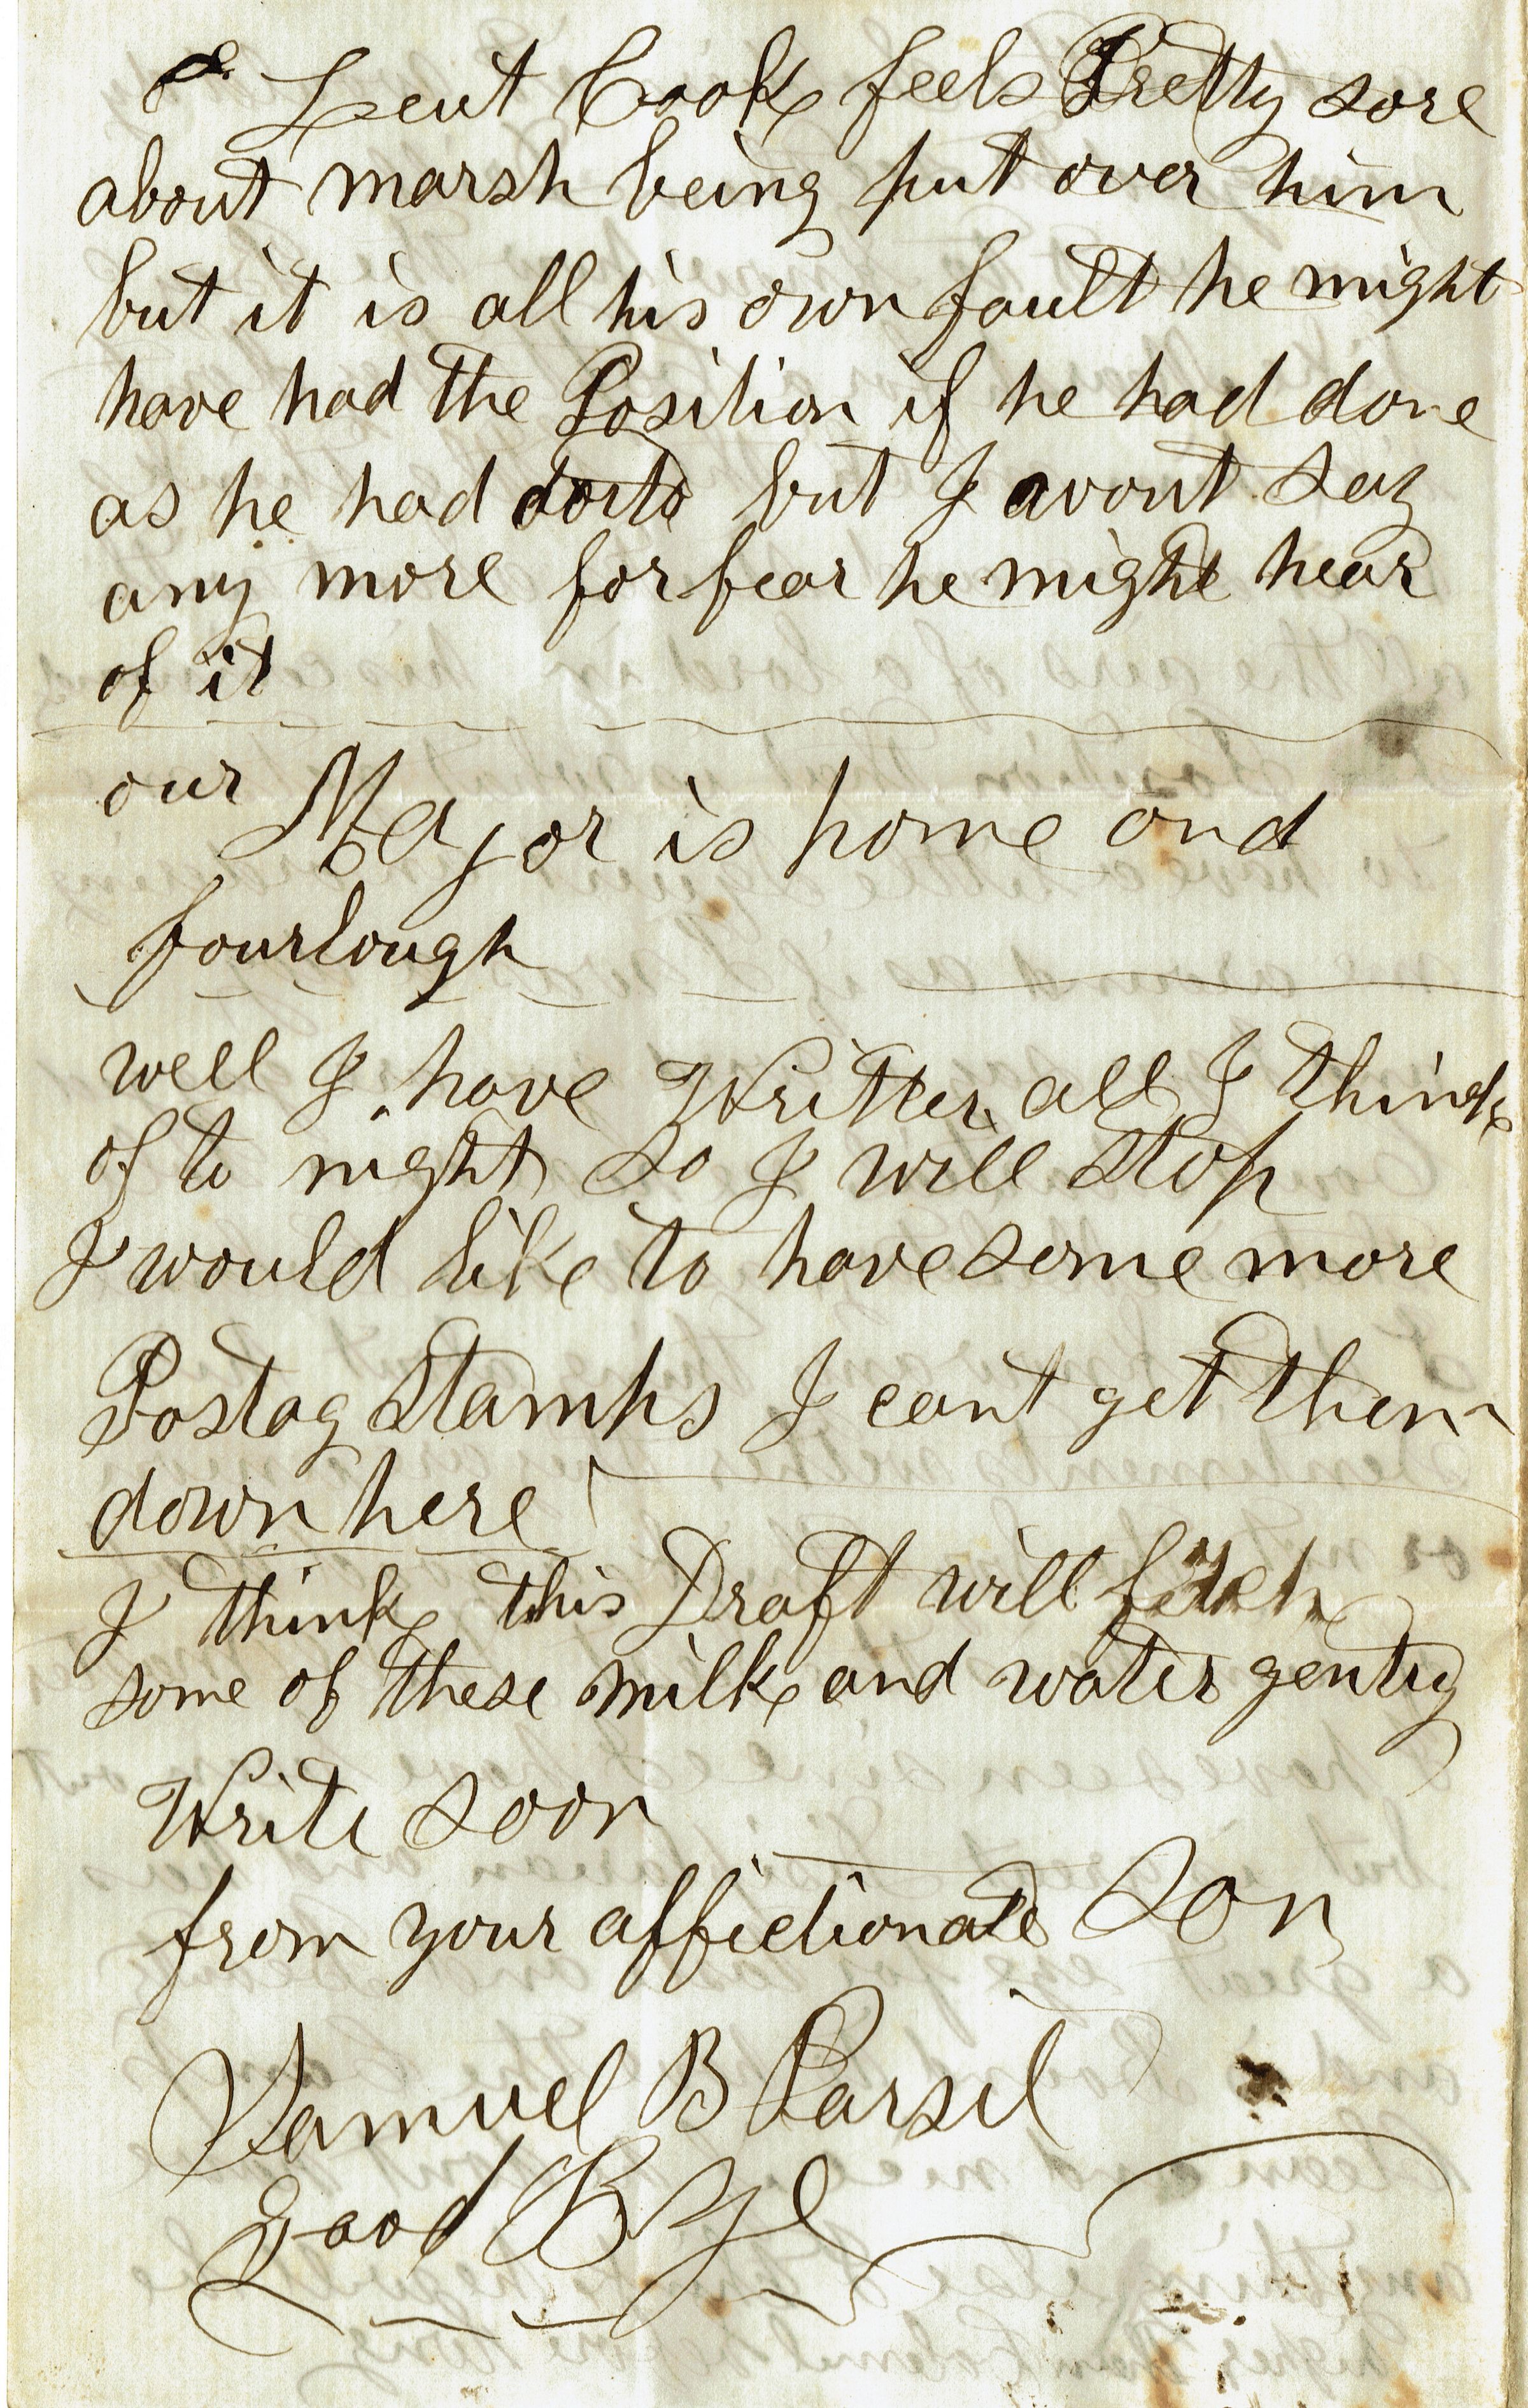 Leut Cook feels Pretty sore
about marsh being put over him
but it is all his own fault he might
have had the Position if he had done
as he had but I wont say
any more for fear he might hear
of it
our Major is home and
fourlough
well I have Written all I think
of to night so I will stop
I would like to have some more
Postag Stamps I cant get them
down here
I think this Draft will fetch
some of these milk and water gentry
Write soon
from your affectionate Son
Samuel B Parsil
Good Bye